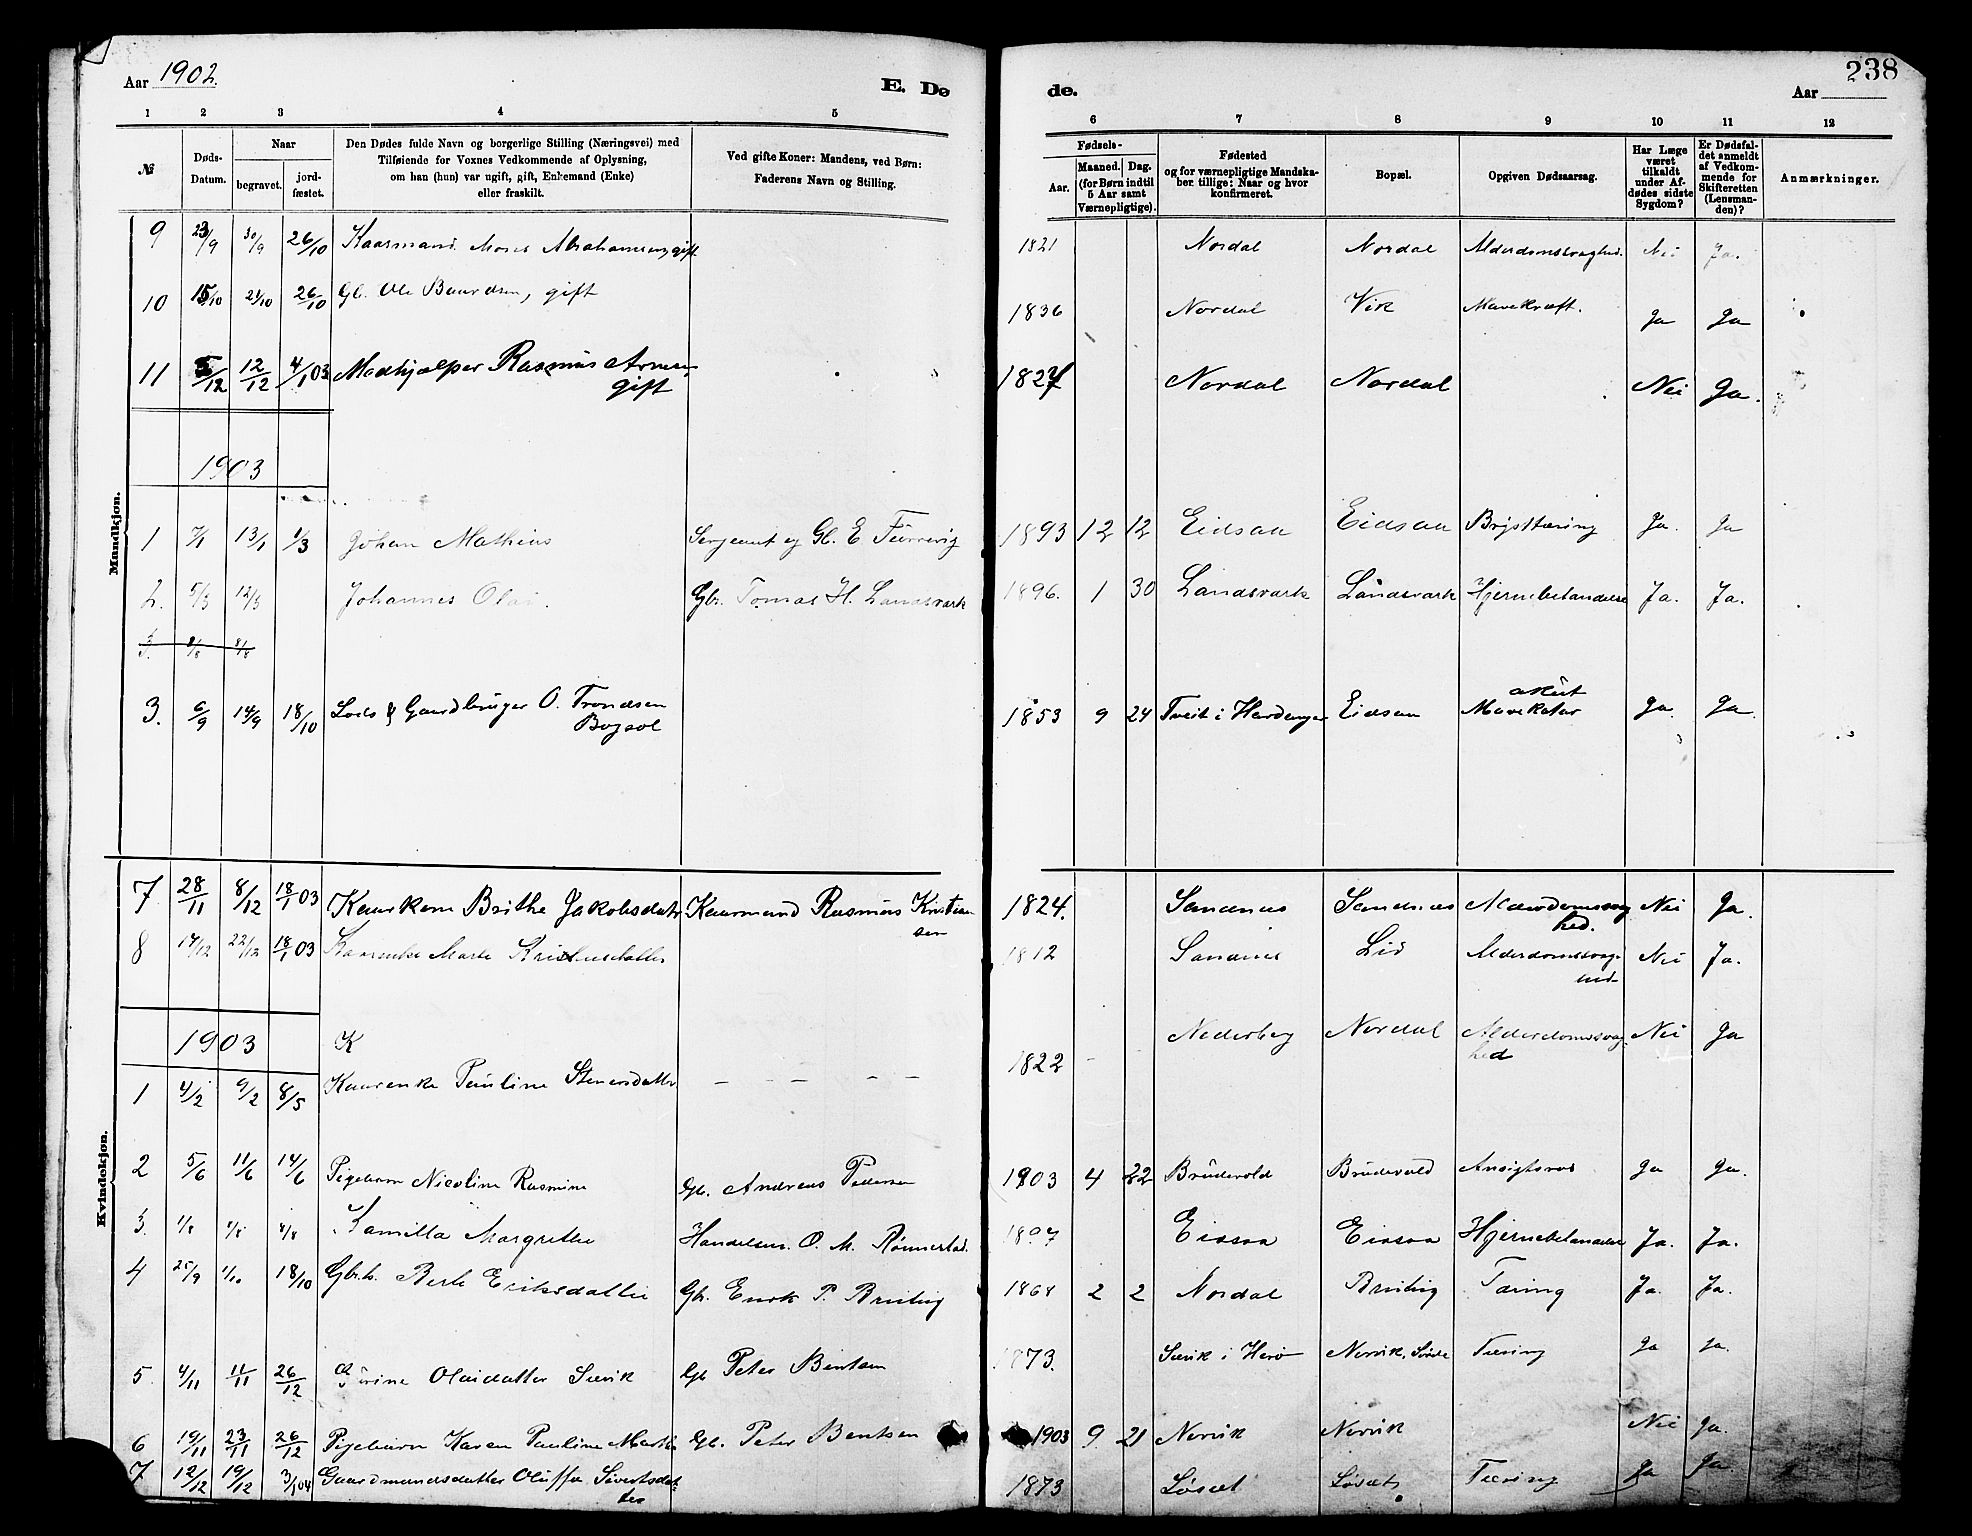 Aar 1902. E. Dø
de. Aar 238
1 2 3 4 5
6 7 8 9 10 11 12
№ Døds-Datum. Naar begravet. jordfæstet. Den Dødes fulde Navn og borgerlige Stilling (Næringsvei) med Tilføiende for Voxnes Vedkommende af Oplysning, om han (hun) var ugift, gift, Enkemand (Enke) eller fraskilt. Ved gifte Koner: Mandens, ved Børn: Faderens Navn og Stilling.
Fødsels- Aar. Maaned. Dag. (for Børn indtil 5 Aar samt Værnepligtige). Fødested og for værnepligtige Mandskaber tillige: Naar og hvor konfirmeret. Bopæl. Opgiven Dødsaarsag. Har Læge været tilkaldt under Afdødes sidste Sygdom? Er Dødsfaldet anmeldt af Vedkommende for Skifteretten (Lensmanden)? Anmærkninger.
Mandkjøn.
9 23/9 30/9 26/10 Kaarmand Moses Abrahamsen, gift 1821 Nordal Nordal Alderdomssvaghed. Nei Ja.
10 15/10 24/10 26/10 Gb. Ole Baardsen, gift 1836 Nordal Vik Mavekræft. Ja Ja
11 5/12 12/12 4/1 03 Medhjælper Rasmus Arnesen gift 1827 Nordal Nordal Nei Ja.
1903
1 7/1 13/1 1/3 Johan Mathias Sergeant og Gb. E 1893 12 12 Eidsaa Eidsaa Brysttæring Ja. Ja
2. 5/3 12/3 Johannes Olai. Gbr. Tomas H. Landsvark 1896. 1 30 Landsvark Landsvark Hjernebetændelse Ja. Ja.
3. 1/8 8/8
3. 6/9 14/9 18/10 Lods & Gaardbruger O. Trondsen 1853 9 24 Tveit i Hardanger Eidsaa akut Mavekatar Ja. Ja.
Kvindekjøn.
7 28/11 8/12 18/1 03 Kaarkone Brithe Jakobsdatr Kaarmand Rasmus Kristiansen 1824. Sandnes Sandnes Alderdomssvaghed. Nei Ja.
8 14/12 22/12 18/1 03 Kaarenke Marte 1812 Sandnes Lid Alderdomssvaghed Nei Ja.
1903 K
1 4/2 9/2 8/5 Kaarenke Pauline Stenersdatter - - - - - 1822 - Nederberg Nordal Alderdomssvaghed Nei Ja
2 5/6 11/6 14/6 Pigebarn Nicoline Rasmine Gb. Andreas Pedersen 1903 4 22 Brudevold Brudevold Ansigtsros Ja Ja.
3. 1/8 8/8 Kamilla Margrethe Handelsm. O. M. Rønnestad. 1897 Eidsaa Eidsaa Hjernebetændelse Ja. Ja.
4 25/9 1/10 18/10 Gbr.k. Berte Eriksdatter Gb. P. 1864 2 2 Nordal Tæring Ja. Ja.
5. 4/11 11/11 26/12 Olaidatter Sævik Gb Peter Bentsen 1873. Sævik i Herø Norvik, Tæring Ja Ja.
6 19/11 23/11 26/12 Pigebarn Karen Pauline Gb. Peter Bentsen 1903 9. 21 Norvik Norvik Nei Ja.
7 12/12 19/12 3/1 04 Gaardmandsdatter Oluffa Sivertsdatter 1873 Løset Løset Tæring Ja Ja.